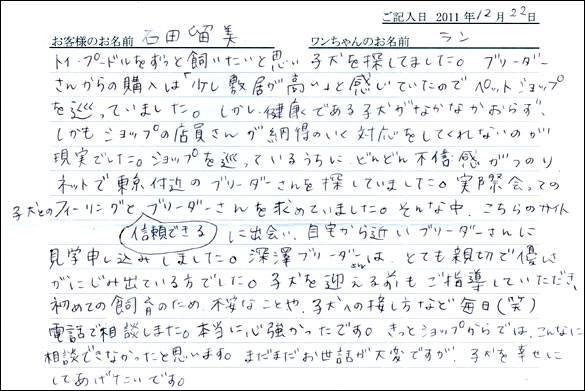 ご記入日 2011年12月22日
お客様のお名前 石田留美 ワンちゃんのお名前 ラン
トイ・プードルをずっと飼いたいと思い 子犬を探してました。ブリーダー
さんからの購入は「少し敷居が高い」と感じていたので ペットショップ
を巡っていました。しかし、健康である子犬がなかなかおらず、
しかも ショップの店員さんが納得のいく対応をしてくれないのが
現実でした。ショップを巡っているうちに、どんどん不信感がつのり
ネットで東京付近のブリーダーさんを探していました。実際会っての
子犬とのフィーリングと、ブリーダーさんを求めていました。そんな中、こちらのサイト
信頼できる に出会い、自宅から近いブリーダーさんに
見学申し込みしました。深澤ブリーダーさんは、とても親切で優しさ
がにじみ出ている方でした。子犬を迎える前もご指導していただき、
初めての飼育のため、不安なことや、子犬への接し方など毎日(笑)
電話で相談しました。本当に心強かったです。きっとショップからでは、こんなに
相談できなかったと思います。まだまだお世話が大変ですが、子犬を幸せに
してあげたいです。